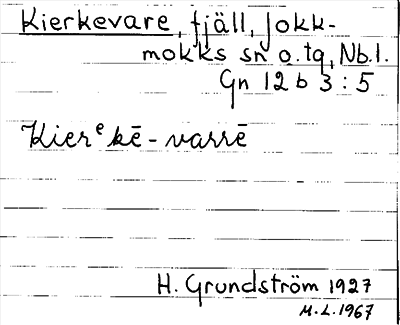 Kierkevare, fjäll, Jokk-
mokks sn o. tg, Nb. l.
Gn 12 b 3 : 5
Kierᵉkē-varrē
H. Grundström 1927
M.L. 1967